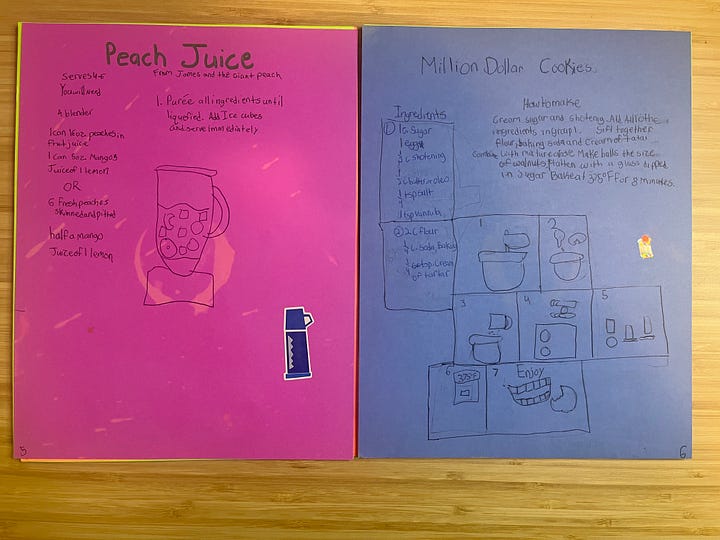 Peach Juice
From James and the Giant peach
serves 4-5
You will need
A blender
1 can 16oz peaches in
fruit juice
1 can 8oz Mangos
Juice of 1 lemon
OR
6 fresh peaches
skinned and pitted
half a mango
Juice of 1 lemon
1. Parée all ingredients until
liquefied. Add Ice cubes
and serve immediately
5
Million Dollar Cookies
Ingredients
1 1c. Sugar
1 egg
c shotening
c butter or oleo
tsp salt
1 tsp vannila
2 2 c flour
tsp. cream
of tartar
How to make
Cream sugar and shotening. Add all othe
ingredients in grup 1. Sift together
flour, baking soda and Cream of Tatar
Combine with mixture above Make balls the size
of walnuts, flatten with a glass dipped
in Sugar Bake at 375°F for 8 minutes.
1
2
3
4
5
6
375°F
7
Enjoy
6